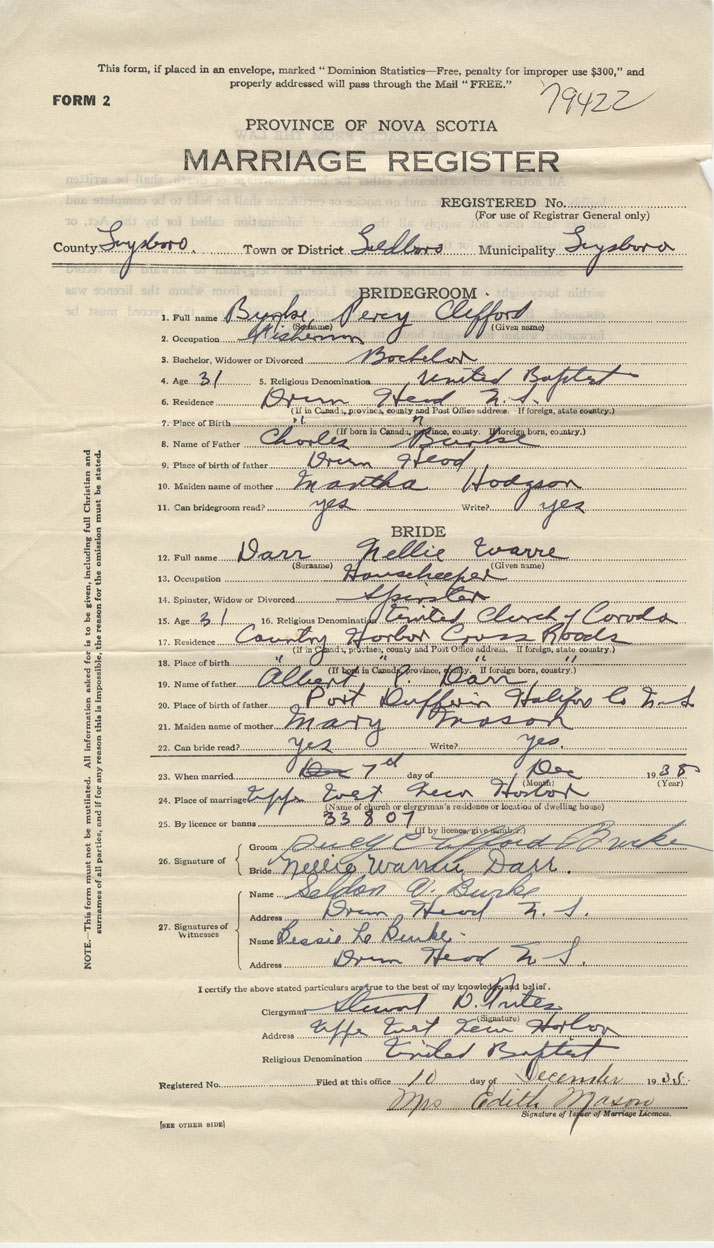 This form, if placed in an envelope, marked "Dominion Statistics—Free, penalty for improper use $300," and
properly addressed will pass through the Mail "FREE."
FORM 2
79422
PROVINCE OF NOVA SCOTIA
MARRIAGE REGISTER
REGISTERED No.
(For use of Registrar General only)
County Guysboro Town or District Municipality Guysboro
BRIDEGROOM
1. Full name Burke Percy Clifford
(Surname) (Given name)
2. Occupation Fisherman
3. Bachelor, Widower or Divorced Bachelor
4. Age 31 5. Religious Denomination United Baptist
6. Residence Drum Head N.S.
(If in Canada, province, county and Post Office address. If foreign, state country.)
7. Place of Birth " "
(If born in Canada, province, county. If foreign born, country.)
8. Name of Father Charles Burke
9. Place of birth of father Drum Head
10. Maiden name of mother Martha Hodgson
11. Can bridegroom read? yes Write? yes
BRIDE
12. Full name Darr Nellie
(Surname) (Given name)
13. Occupation Housekeeper
14. Spinster, Widow or Divorced Spinster
15. Age 31 16. Religious Denomination United Church of Canada
17. Residence Country Harbor Cross Roads
(If in Canada, province, county and Post Office address. If foreign, state country.)
18. Place of birth " " " "
(If born in Canada, province, county. If foreign born, country.)
19. Name of father Albert P. Darr
20. Place of birth of father Port Dufferin Halifax Co N.S
21. Maiden name of mother Mary Mason
22. Can bride read? yes Write? yes.
23. When married 7th day of Dec 1938
(Month) (Year)
24. Place of marriage Upper West New Harbor
(Name of church or clergyman's residence or location of dwelling house)
25. By licence or banns 33807
(If by licence, give number)
26. Signature of
Groom Percy Clifford Burke
Bride Nellie Darr.
27. Signatures of Witnesses
Name Seldon V. Burke
Address Drum Head N.S.
Name Bessie L. Burke
Address Drum Head N S.
I certify the above stated particulars are true to the best of my knowledge and belief.
Clergyman D.
(Signature)
Address Upper West New Harbor
Religious Denomination United Baptist
Registered No. Filed at this office 10 day of December 1938.
Mrs Edith Mason
Signature of Issuer of Marriage Licences.
[SEE OTHER SIDE]
NOTE.—This form must not be mutilated. All information asked for is to be given, including full Christian and
surnames of all parties, and if for any reason this is impossible, the reason for the omission must be stated.